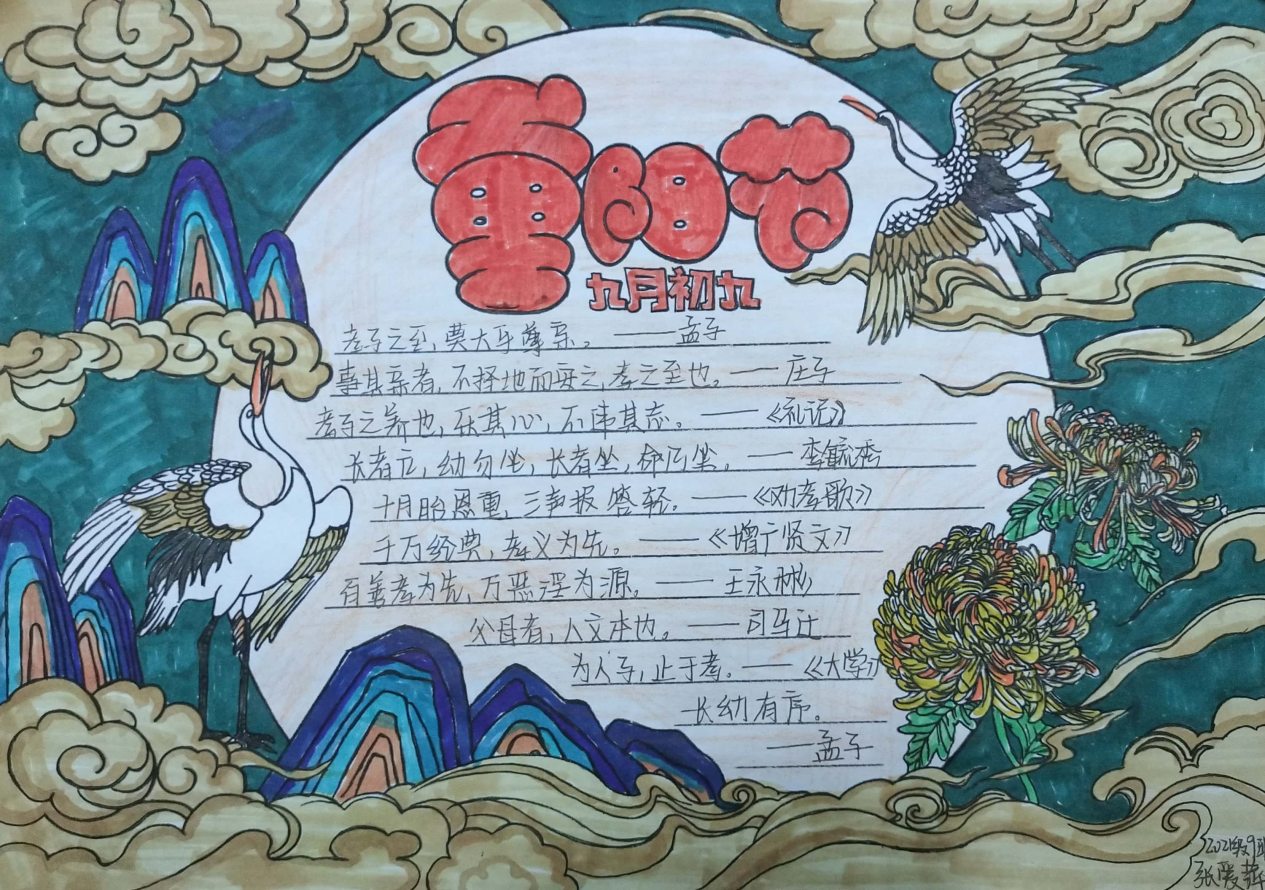 重阳节
九月初九
孝子之至,莫大乎尊亲。——孟子
事其亲者,不择地而安之,孝之至也。——庄子
孝子之养也,乐其心,不违其志。——《礼记》
长者立,幼勿坐,长者坐,命乃坐。——李毓秀
十月胎恩重,三生报答轻。——《劝孝歌》
千万经典,孝义为先。——《增广贤文》
百善孝为先,万恶淫为源。——王永彬
父母者,人文本也。——司马迁
为人子,止于孝。——《大学》
长幼有序。
——孟子
2021级9班
张爱